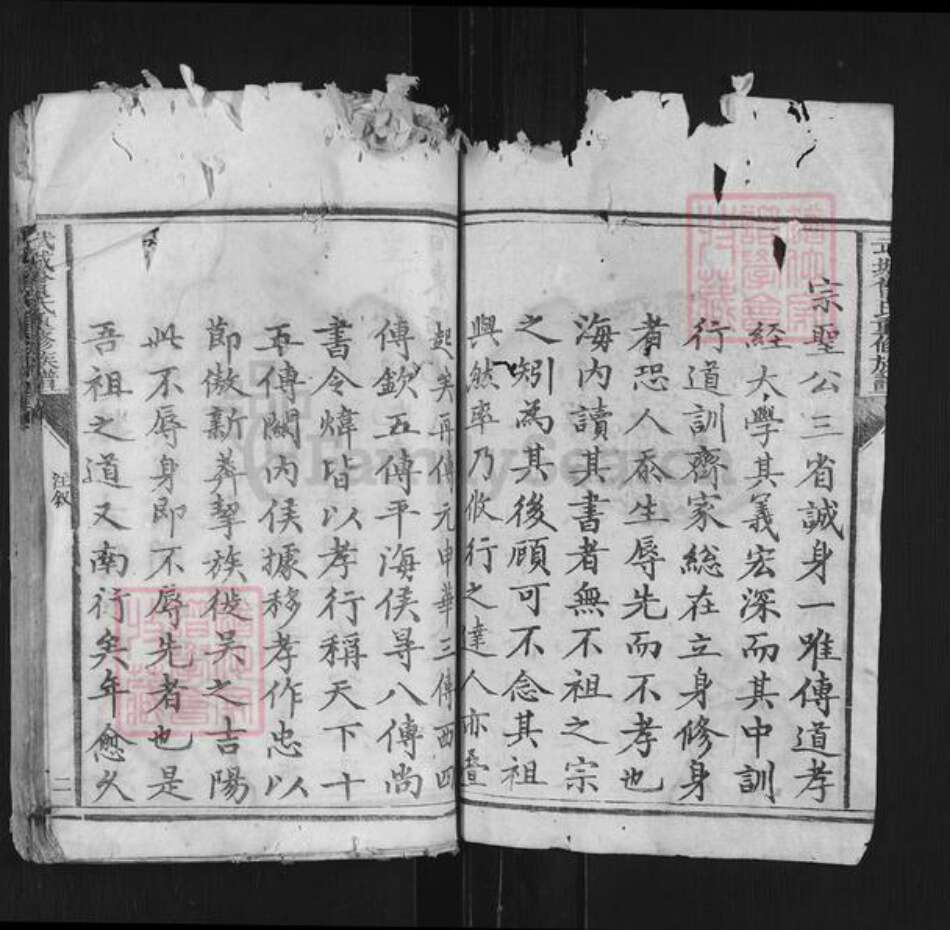 宗聖公三省誠身一唯傳道孝
經大學其義宏深而其中訓
行道訓齊家總在立身修身
者恐人忝生辱先而不孝也
海內讀其書者無不祖之宗
之矧為其後顧可不念其祖
興然率乃攸行之達人亦疊
起矣再傳元申華三傳西四
傳欽五傳平海侯㝵八傳尚
書令煒皆以孝行稱天下十
五傳關內侯據移孝作忠以
節傲新莽挈族徙吳之吉陽
此不辱身即不辱先者也是
吾祖之道又南衍矣年愈久
武城曾氏重修族譜
江敘
二
FamilySearch